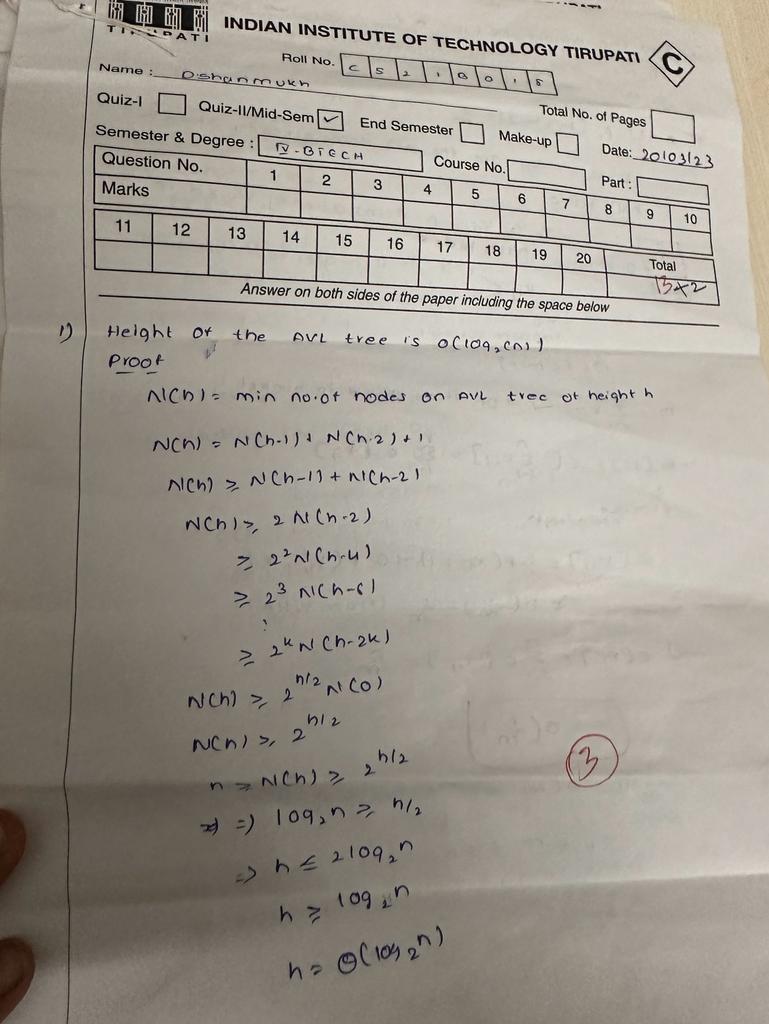 TIRUPATI
INDIAN INSTITUTE OF TECHNOLOGY TIRUPATI
C
Roll No. C S 2 1 B 0 1 5
Name : D Shanmukh
Quiz-I Quiz-II/Mid-Sem ✓ End Semester Make-up Total No. of Pages
Date: 20/03/23
Semester & Degree : IV - BTECH Course No. Part :
Question No. 1 2 3 4 5 6 7 8 9 10
Marks
11 12 13 14 15 16 17 18 19 20 Total
13×2
Answer on both sides of the paper including the space below
1) Height of the AVL tree is O(log₂(n))
Proof
N(h) = min no.of nodes on AVL tree of height h
N(h) = N(h-1) + N(h-2) + 1
N(h) ≥ N(h-1) + N(h-2)
N(h) ≥ 2 N(h-2)
≥ 2² N(h-4)
≥ 2³ N(h-6)
⋮
≥ 2ᵏ N(h-2k)
N(h) ≥ 2^(h/2) N(0)
N(h) ≥ 2^(h/2)
n ≥ N(h) ≥ 2^(h/2)
3
=) log₂n ≥ h/2
=> h ≤ 2log₂n
h ≥ log₂n
h = Θ(log₂n)